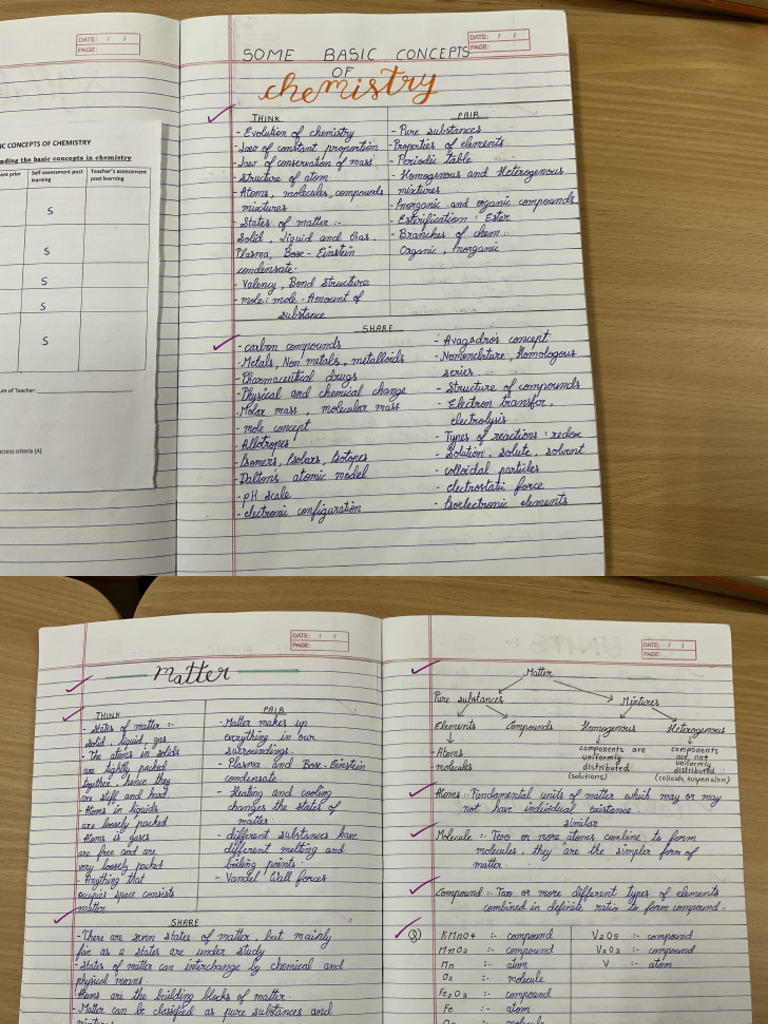 DATE: / /
PAGE:
IC CONCEPTS OF CHEMISTRY
nding the basic concepts in chemistry
ent prior
Self-assessment post learning
Teacher's assessment post learning
S
S
S
S
S
ure of Teacher:
ccess criteria (A)
DATE: / /
PAGE:
SOME BASIC CONCEPTS
OF
chemistry
THINK
- Evolution of chemistry
- Law of constant proportion
- Law of conservation of mass
- Structure of atom
- Atoms, molecules, compounds
mixtures
- States of matter :-
Solid, Liquid and Gas.
Plasma, Bose-Einstein
condensate.
- Valency, Bond Structure
- mole: mole - Amount of
substance
PAIR
- Pure substances
- Properties of elements
- Periodic table
- Homogenous and Heterogenous
mixtures
- Inorganic and organic compounds
- Esterification : Ester
- Branches of chem :-
Organic, Inorganic
SHARE
- carbon compounds
- Metals, Non metals, metalloids
- Pharmaceutical drugs
- Physical and chemical change
- Molar mass, molecular mass
- mole concept
- Allotropes
- Isomers, Isobars, Isotopes
- Dalton's atomic model
- pH scale
- electronic configuration
- Avagadro's concept
- Nomenclature, Homologous
series.
- Structure of compounds
- Electron transfer,
electrolysis
- Types of reactions : redox
- Solution, solute, solvent
- colloidal particles
- electrostatic force
- Isoelectronic elements
DATE: / /
PAGE:
Matter
THINK
- States of matter :-
solid, liquid, gas
- The atoms in solids
are tightly packed
together, hence they
are stiff and hard.
- Atoms in liquids
are loosely packed
Atoms is gases
are free and are
very loosely packed
- Anything that
occupies space consists
matter
PAIR
- Matter makes up
everything in our
surroundings.
- Plasma and Bose-Einstein
condensate
- Heating and cooling
changes the states of
matter
- different substances have
different melting and
boiling points.
- Vandel Wall forces
SHARE
- There are seven states of matter, but mainly
five as a states are under study
- States of matter can interchange by chemical and
physical means.
- Atoms are the building blocks of matter.
- Matter can be classified as pure substances and
mixtures
DATE: / /
PAGE:
Matter
Pure substances
Mixtures
Elements
Compounds
Homogenous
Heterogenous
- Atoms
- molecules
components are
uniformly
distributed
(solutions)
components
are not
uniformly
distributed
(colloids, suspension)
Atoms :- Fundamental units of matter which may or may
not have individual existance.
similar
Molecule :- Two or more atoms combine to form
molecules, they are the simpler form of
matter.
Compound :- Two or more different types of elements
combined in definite ratio to form compound.
Q)
KMnO4 :- compound
MnO2 :- compound
Mn :- atom
O2 :- molecule
Fe2O3 :- compound
Fe :- atom
:- molecule
V2O5 :- compound
V2O3 :- compound
V :- atom